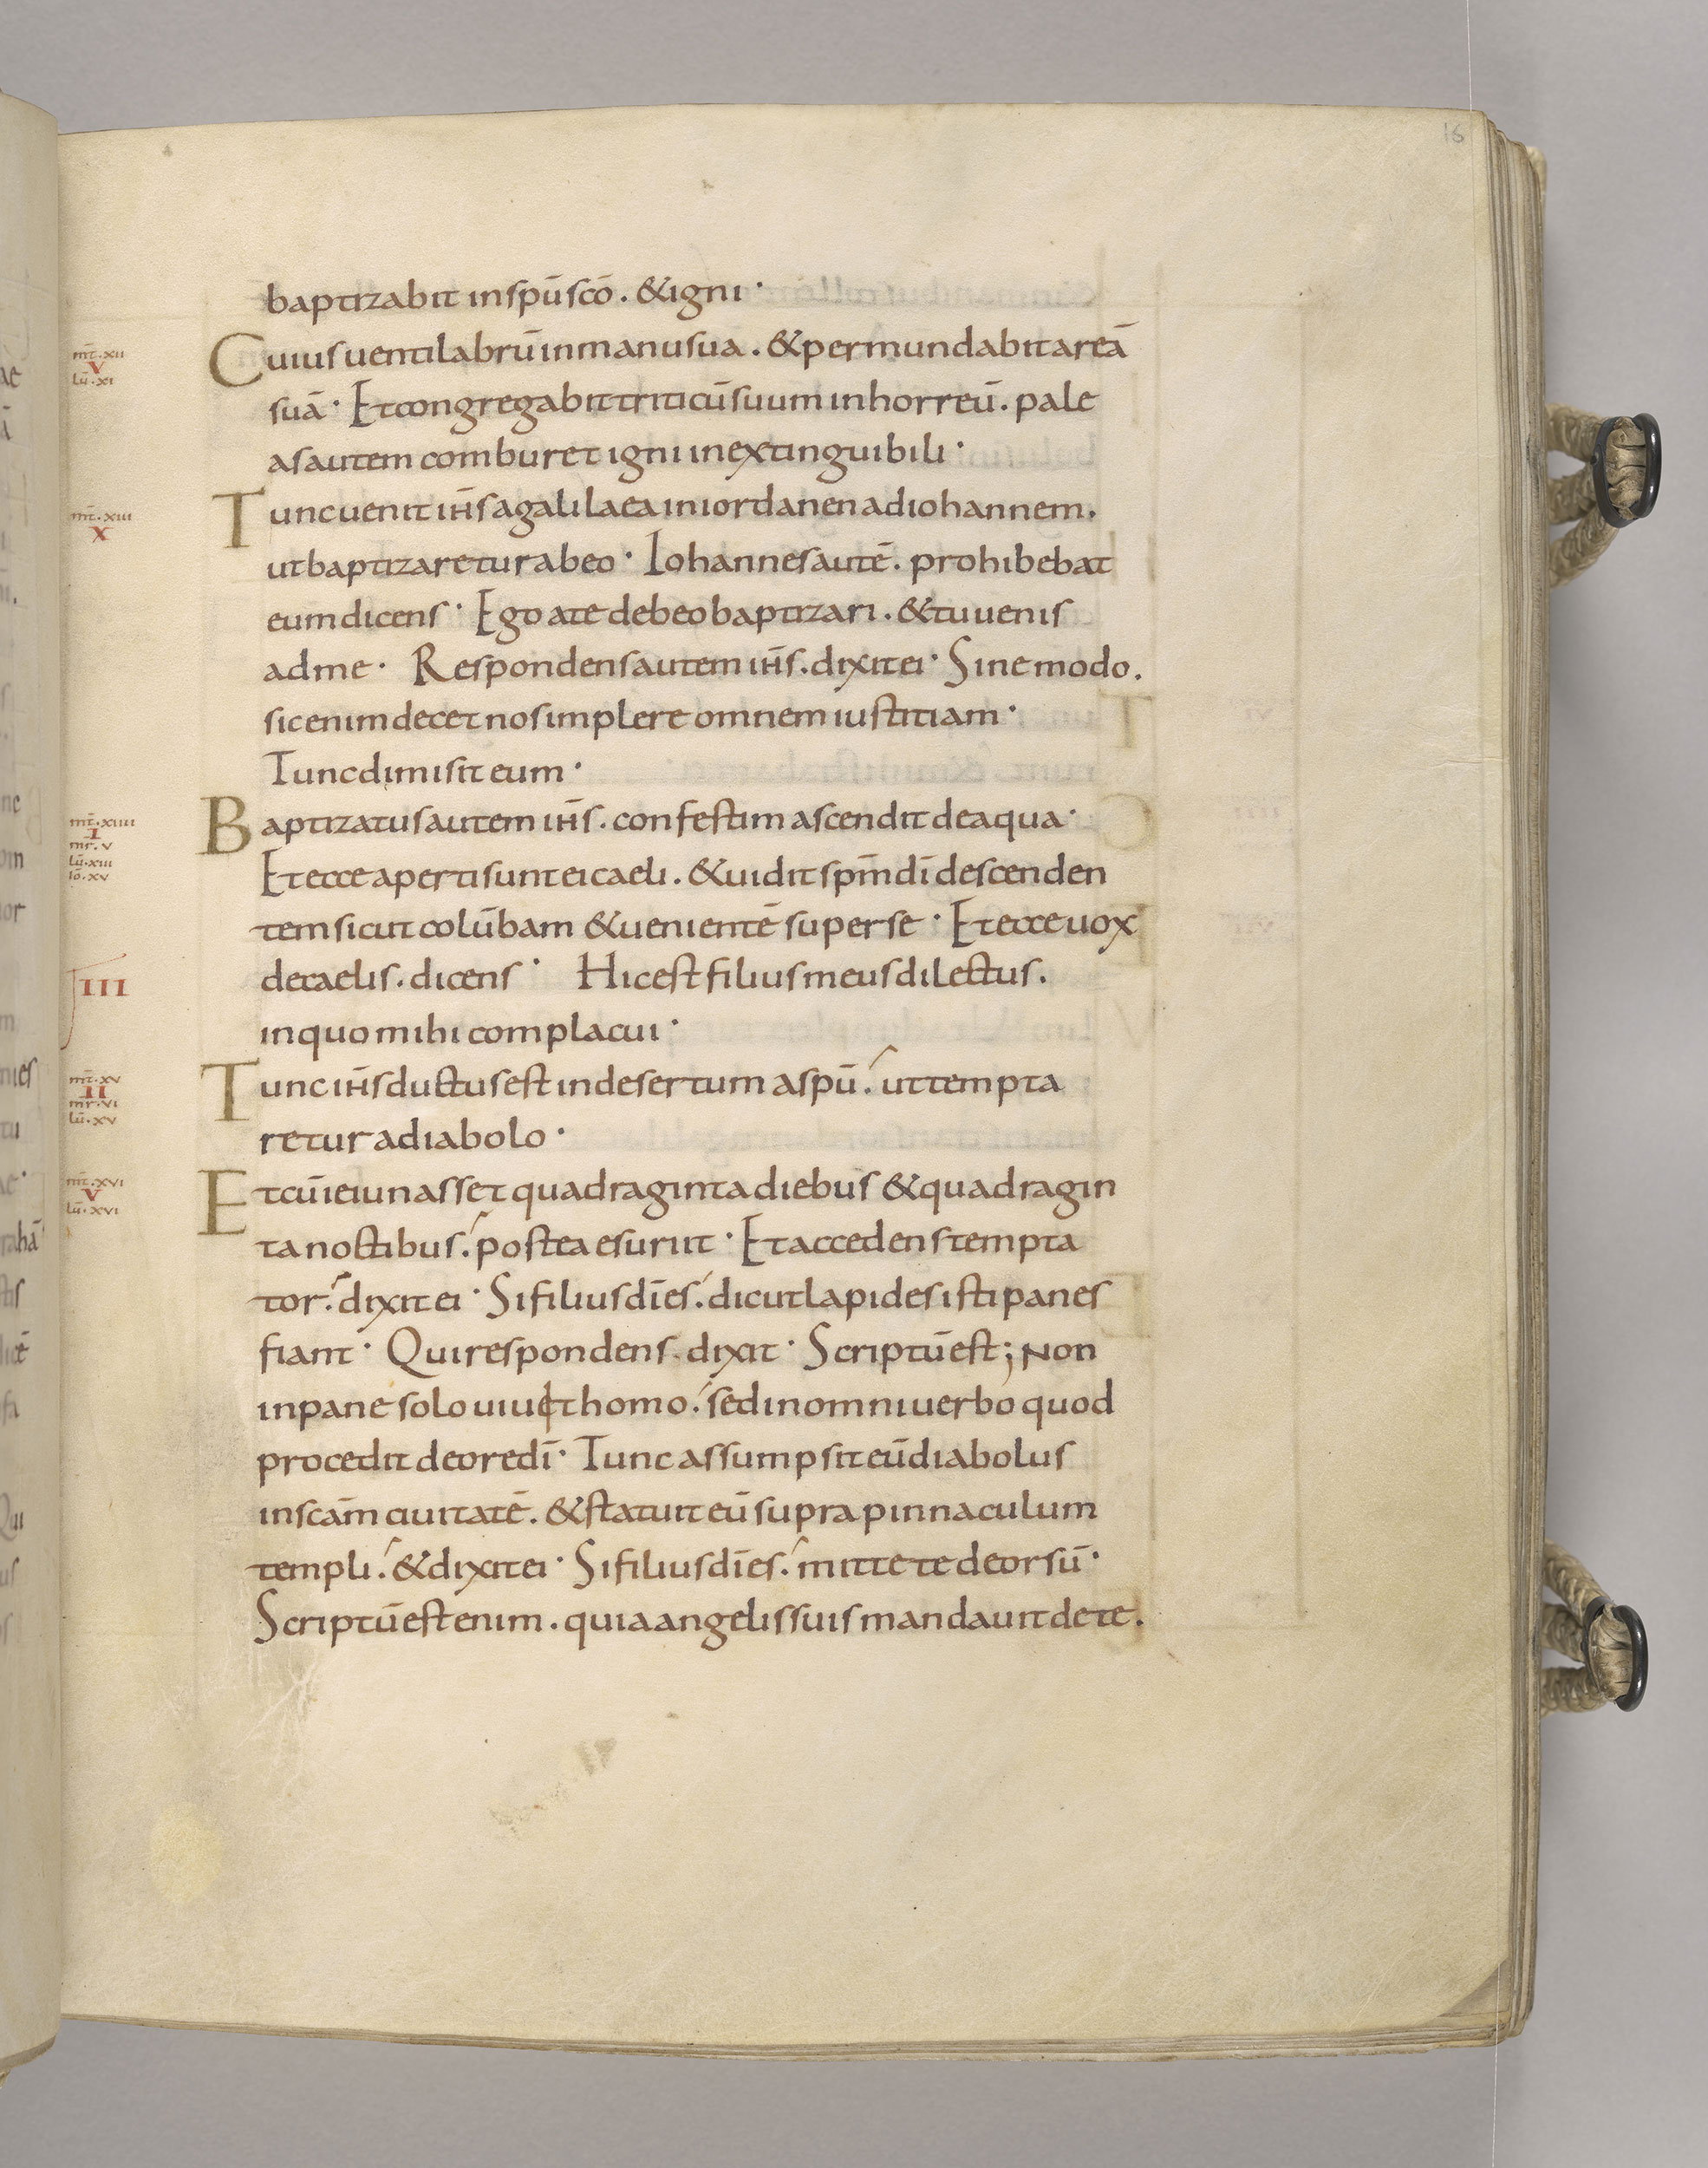 16
baptizabit in sp̄u sc̄o. & igni·
mt̄·xii
V
lū·xi
Cuius uentilabrū in manu sua. & permundabit areā
suā· Et congregabit triticū suum in horreū. pale
as autem comburet igni inextinguibili·
mt̄·xiii
X
Tunc uenit ih̄s a galilaea in iordanen ad iohannem.
ut baptizaretur ab eo· Iohannes autē. prohibebat
eum dicens· Ego a te debeo baptizari. & tu uenis
ad me· Respondens autem ih̄s. dixit ei· Sine modo.
sic enim decet nos implere omnem iustitiam·
Tunc dimisit eum·
mt̄·xiiii
I
mr·v
lū·xiii
iō·xv
Baptizatus autem ih̄s. confestim ascendit de aqua·
Et ecce aperti sunt ei caeli. & uidit sp̄m dī descenden
tem sicut colūbam & uenientē super se· Et ecce uox
III
de caelis. dicens· Hic est filius meus dilectus.
in quo mihi complacui·
mt̄·xv
II
mr·vi
lū·xv
Tunc ih̄s ductus est in desertum a sp̄u. ut tempta
retur a diabolo·
mt̄·xvi
V
lū·xvi
Et cū ieiunasset quadraginta diebus & quadragin
ta noctibus. postea esuriit· Et accedens tempta
tor. dixit ei· Si filius dī es. dic ut lapides isti panes
fiant· Qui respondens. dixit· Scriptū est; Non
in pane solo uiuet homo. sed in omni uerbo quod
procedit de ore dī· Tunc assumpsit eū diabolus
in sc̄am ciuitatē. & statuit eū supra pinnaculum
templi. & dixit ei· Si filius dī es. mitte te deorsū·
Scriptū est enim. quia angelis suis mandauit de te.